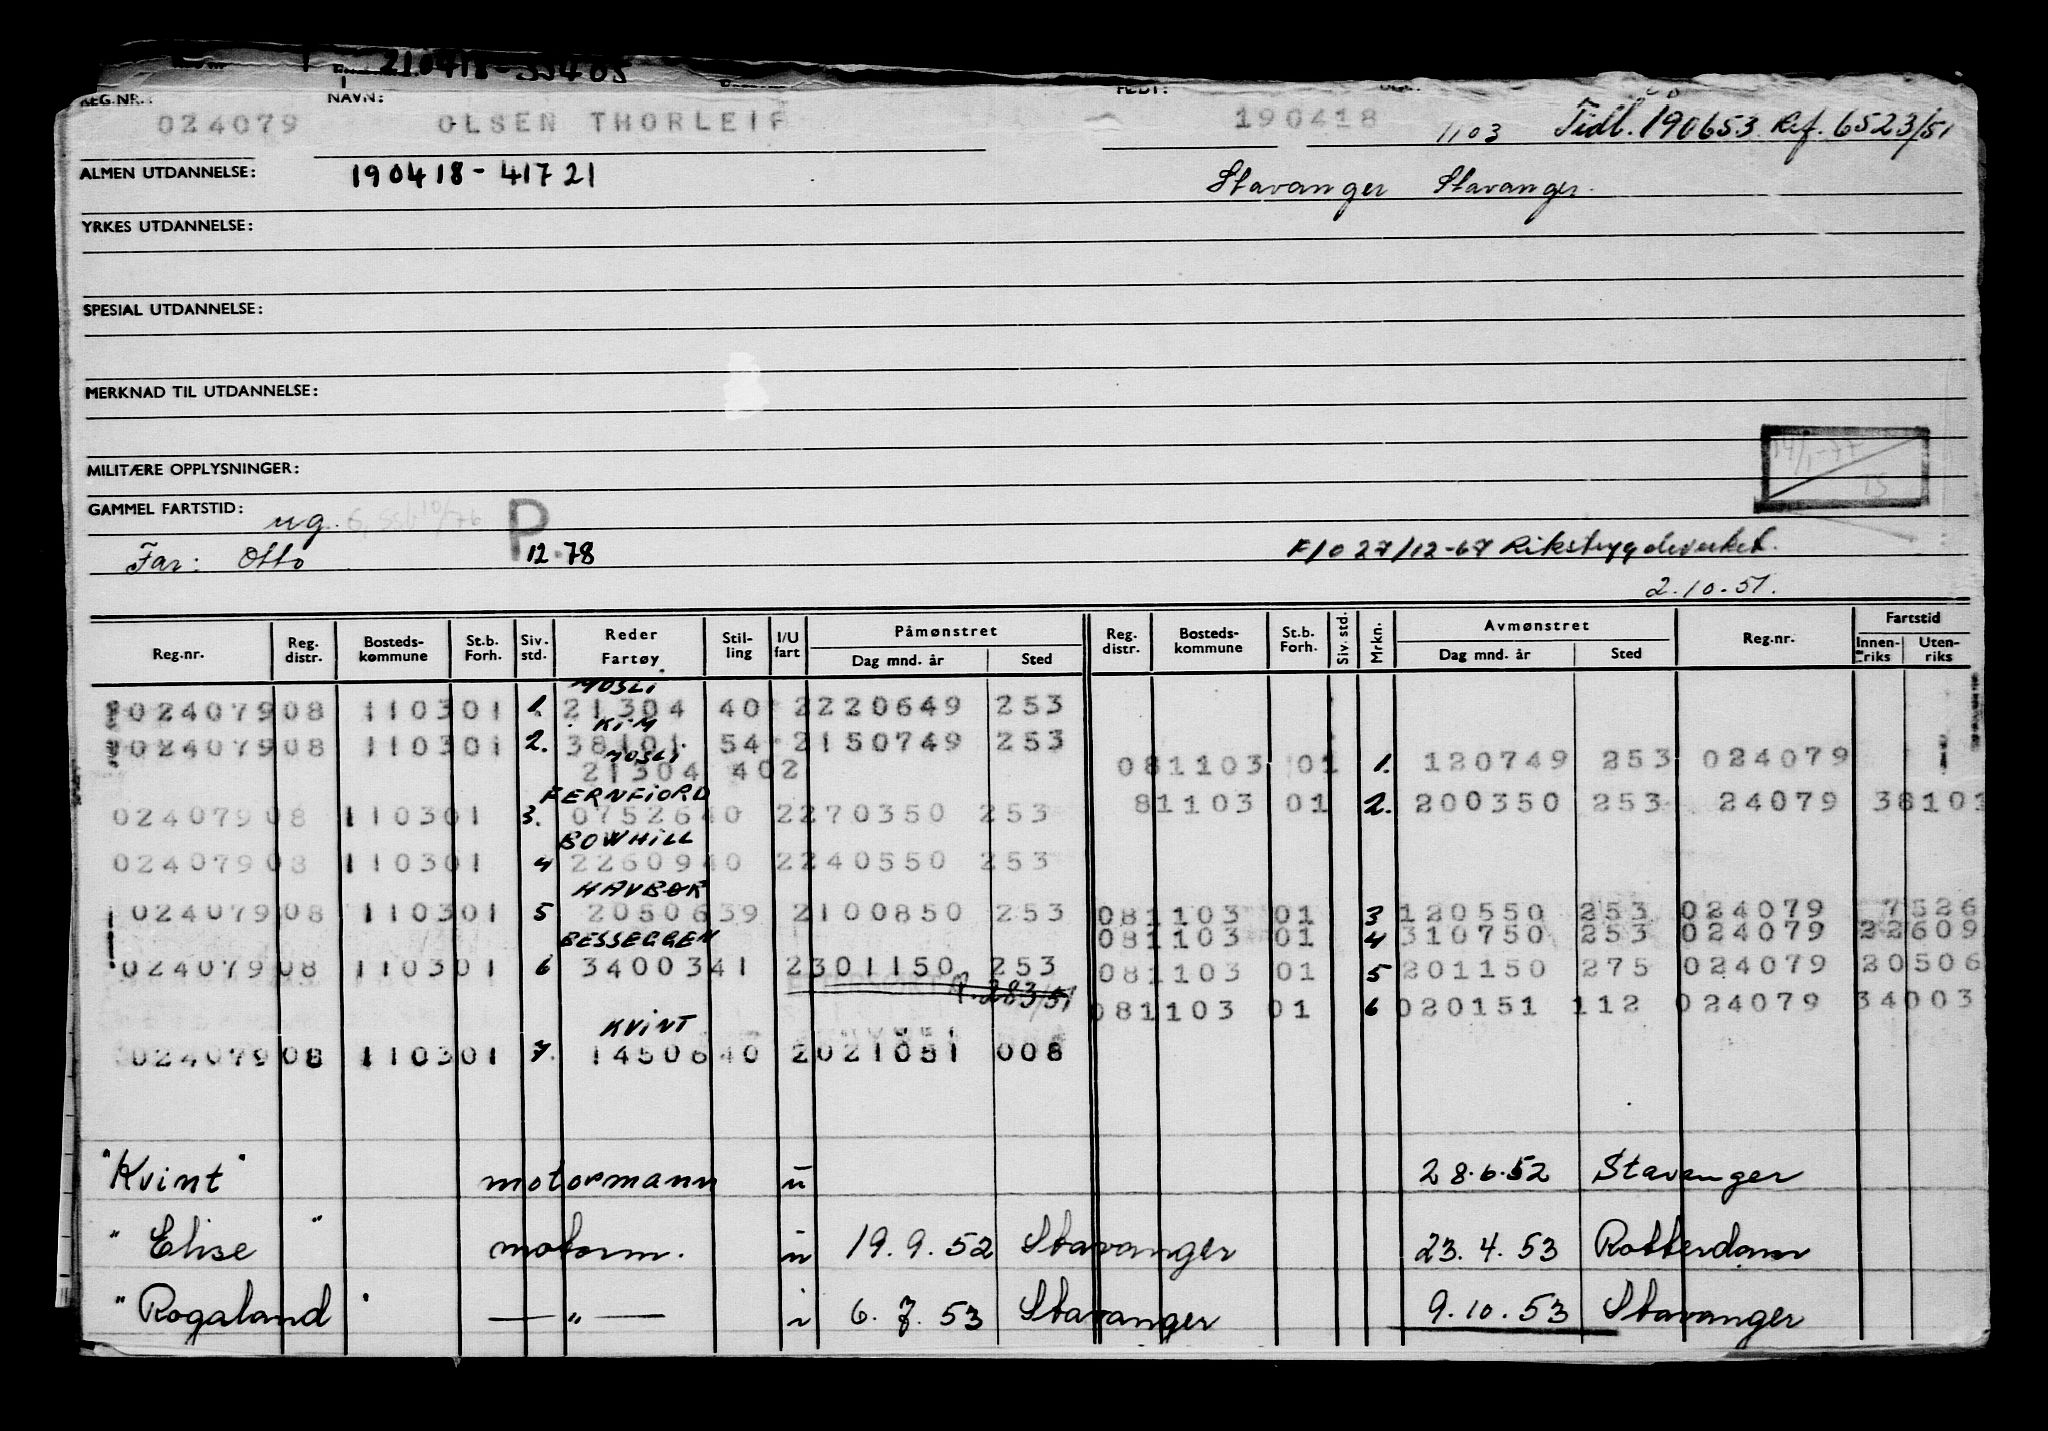 210418-55405
REG.NR.: NAVN: FØDT:
024079 OLSEN THORLEIF 190418 1103 Tidl. 190653 Ref. 6523/51
ALMEN UTDANNELSE: 190418-41721 Stavanger Stavanger.
YRKES UTDANNELSE:
SPESIAL UTDANNELSE:
MERKNAD TIL UTDANNELSE:
MILITÆRE OPPLYSNINGER:
14/1-77 TS
GAMMEL FARTSTID: ug. P
Far: Otto 12.78 F/O 27/12-67 Rikstrygdeverket.
2.10.51.
Reg.nr. Reg. distr. Bosteds- kommune St.b. Forh. Siv. std. Reder Fartøy Stil- ling I/U fart Påmønstret Dag mnd. år Sted Reg. distr. Bosteds- kommune St.b. Forh. Siv. std. Mrkn. Avmønstret Dag mnd. år Sted Reg.nr. Fartstid Innen- riks Uten- riks
MOSLI
024079 08 1103 01 1. 21304 40 2 220649 253
KIM
024079 08 1103 01 2. 38101 54 2 150749 253
MOSLI
21304 402 081103 01 1. 120749 253 024079
FERNFIORD 81103 01 2. 200350 253 24079 38101
024079 08 1103 01 3. 07526 40 2 270350 253
BOWHILL
024079 08 1103 01 4 22609 40 2 240550 253
HAVBØR
024079 08 1103 01 5 20506 39 2 100850 253 081103 01 3 120550 253 024079 7526
BESSEGGEN 081103 01 4 310750 253 024079 22609
024079 08 1103 01 6 34003 41 2 301150 253 081103 01 5 201150 275 024079 20506
P. 283/51 081103 01 6 020151 112 024079 34003
KVINT
024079 08 1103 01 7. 14506 40 2 021051 008
"Kvint" motormann u 28.6.52 Stavanger
"Elise" motorm. u 19.9.52 Stavanger 23.4.53 Rotterdam
"Rogaland" — " — i 6.7.53 Stavanger 9.10.53 Stavanger